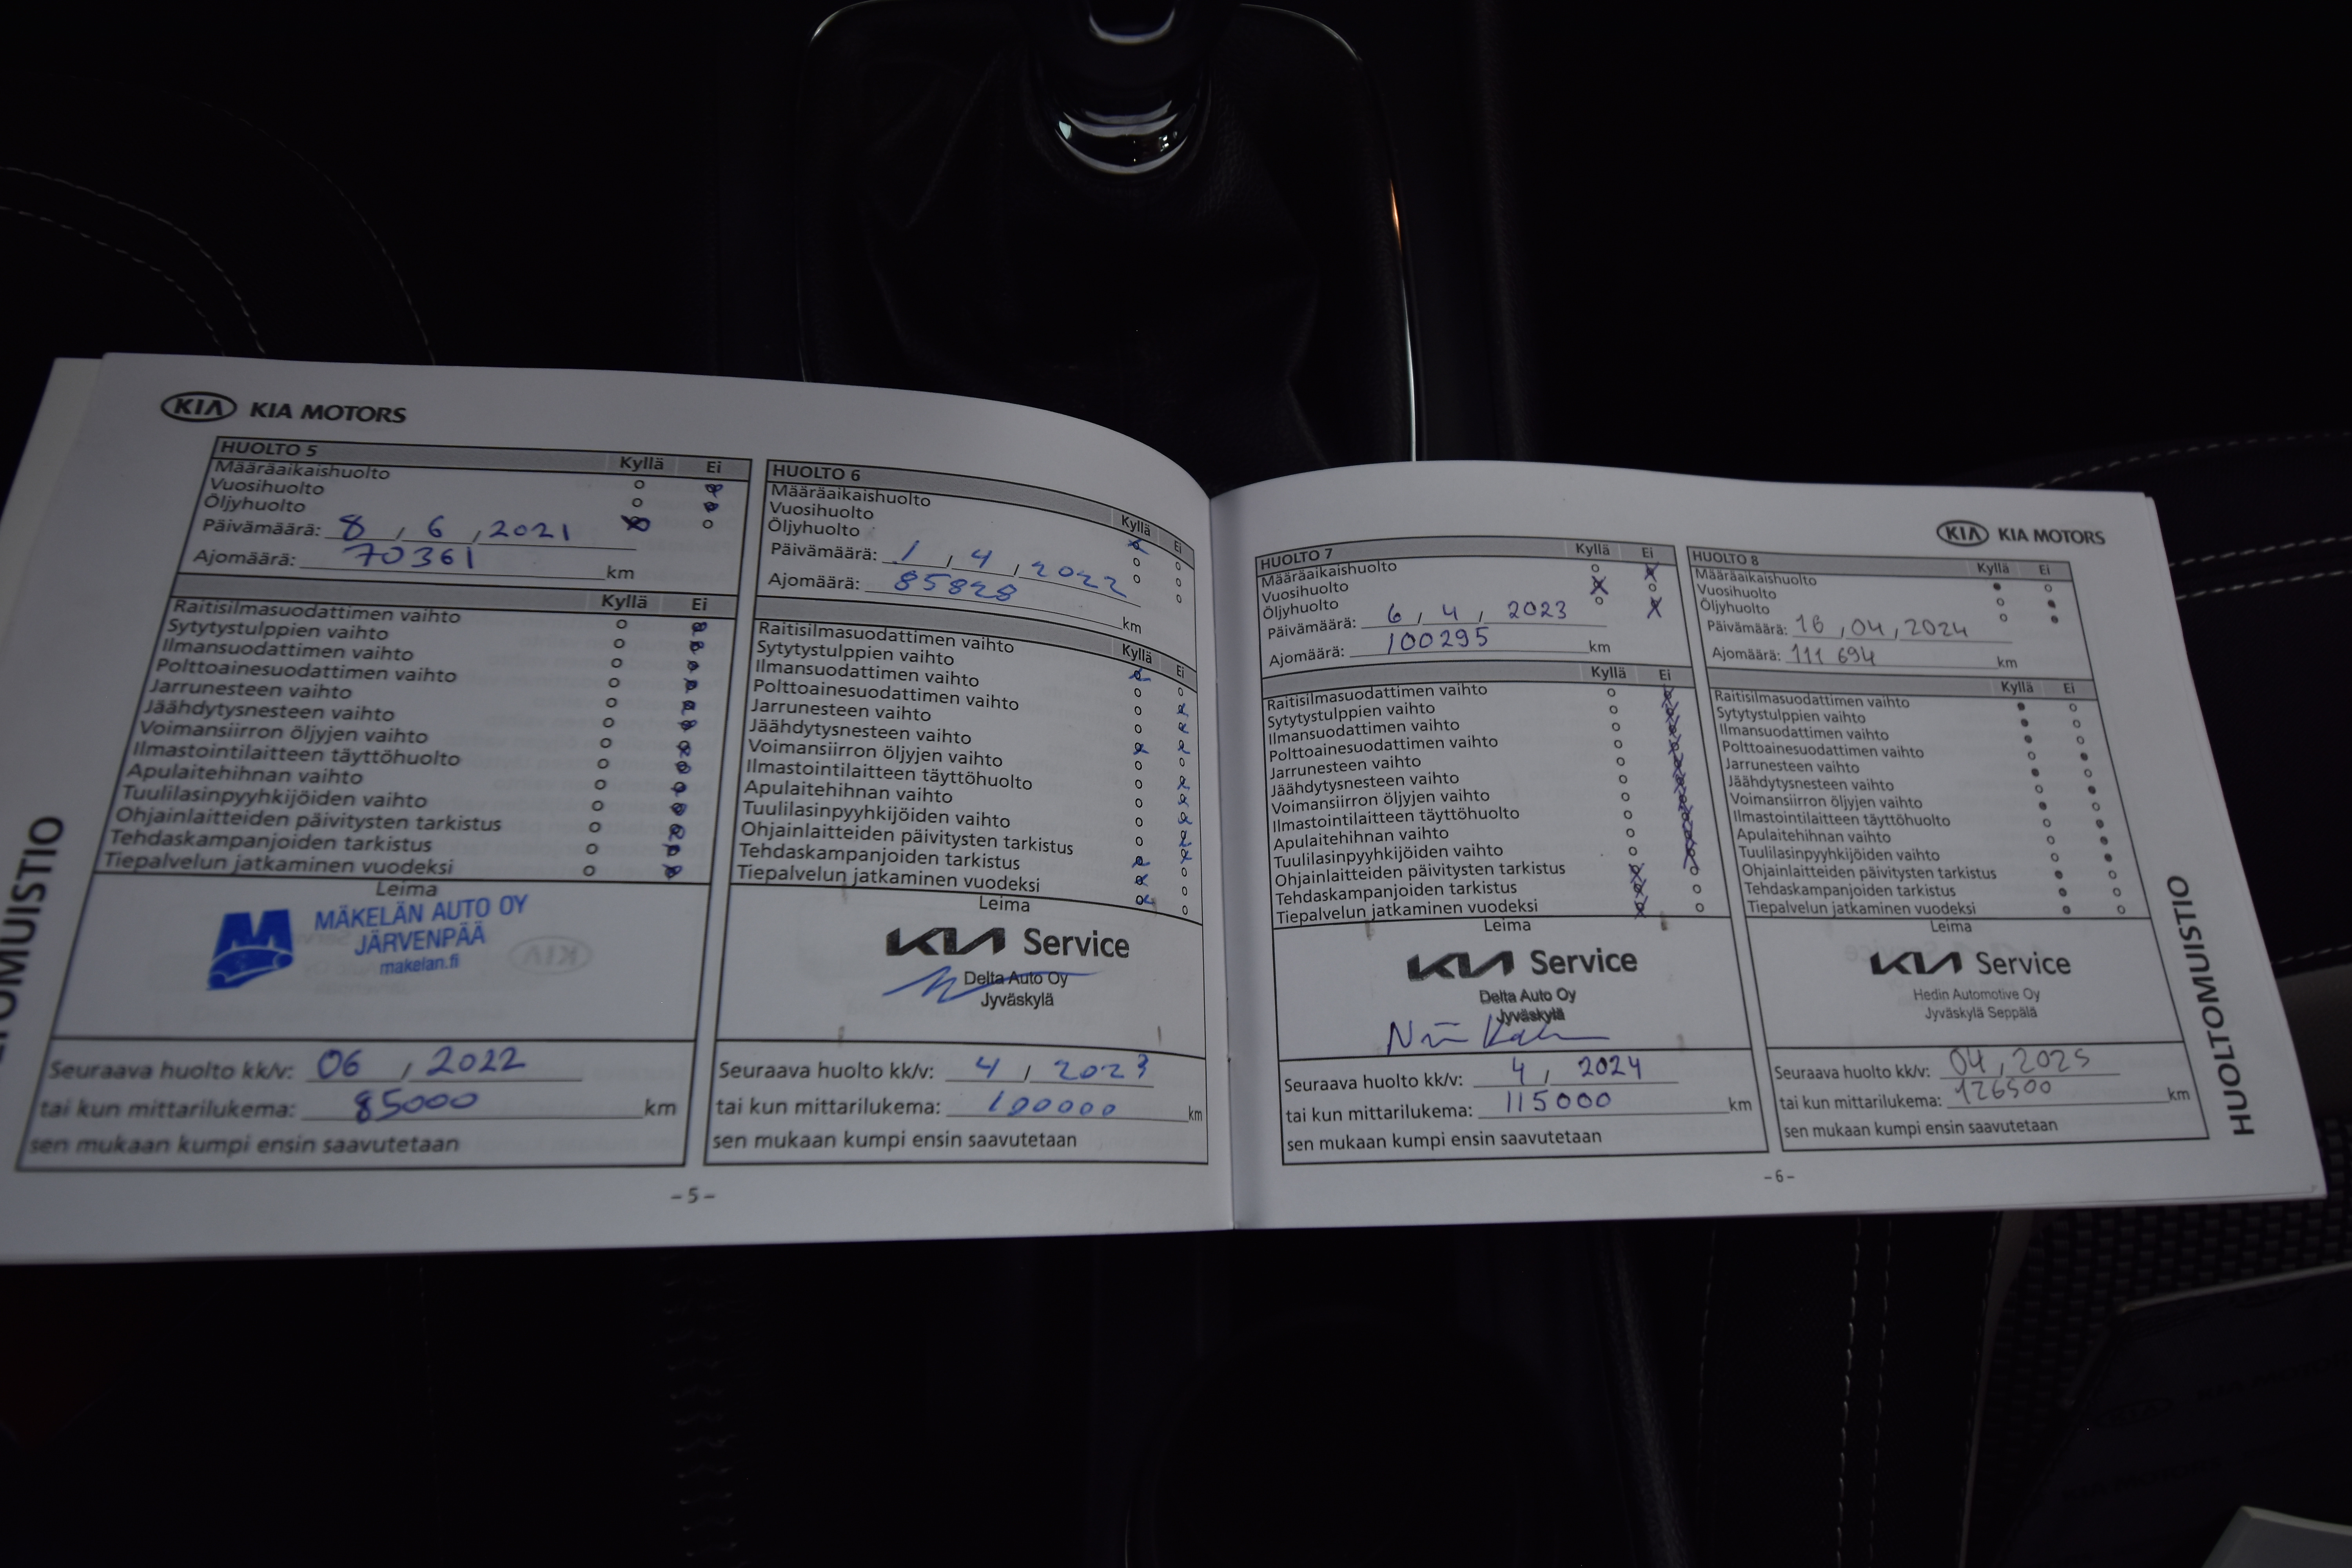 KIA KIA MOTORS
HUOLTO 5 Kyllä Ei
Määräaikaishuolto
Vuosihuolto
Öljyhuolto
Päivämäärä: 8 / 6 / 2021
Ajomäärä: 70361 km
Kyllä Ei
Raitisilmasuodattimen vaihto
Sytytystulppien vaihto
Ilmansuodattimen vaihto
Polttoainesuodattimen vaihto
Jarrunesteen vaihto
Jäähdytysnesteen vaihto
Voimansiirron öljyjen vaihto
Ilmastointilaitteen täyttöhuolto
Apulaitehihnan vaihto
Tuulilasinpyyhkijöiden vaihto
Ohjainlaitteiden päivitysten tarkistus
Tehdaskampanjoiden tarkistus
Tiepalvelun jatkaminen vuodeksi
Leima
MÄKELÄN AUTO OY
JÄRVENPÄÄ
makelan.fi
Seuraava huolto kk/v: 06 / 2022
tai kun mittarilukema: 85000 km
sen mukaan kumpi ensin saavutetaan
HUOLTO 6 Kyllä Ei
Määräaikaishuolto
Vuosihuolto
Öljyhuolto
Päivämäärä: 1 / 4 / 2022
Ajomäärä: 85828 km
Kyllä Ei
Raitisilmasuodattimen vaihto
Sytytystulppien vaihto
Ilmansuodattimen vaihto
Polttoainesuodattimen vaihto
Jarrunesteen vaihto
Jäähdytysnesteen vaihto
Voimansiirron öljyjen vaihto
Ilmastointilaitteen täyttöhuolto
Apulaitehihnan vaihto
Tuulilasinpyyhkijöiden vaihto
Ohjainlaitteiden päivitysten tarkistus
Tehdaskampanjoiden tarkistus
Tiepalvelun jatkaminen vuodeksi
Leima
KIA Service
Delta Auto Oy
Jyväskylä
Seuraava huolto kk/v: 4 / 2023
tai kun mittarilukema: 100000 km
sen mukaan kumpi ensin saavutetaan
- 5 -
KIA KIA MOTORS
HUOLTO 7 Kyllä Ei
Määräaikaishuolto
Vuosihuolto
Öljyhuolto
Päivämäärä: 6 / 4 / 2023
Ajomäärä: 100295 km
Kyllä Ei
Raitisilmasuodattimen vaihto
Sytytystulppien vaihto
Ilmansuodattimen vaihto
Polttoainesuodattimen vaihto
Jarrunesteen vaihto
Jäähdytysnesteen vaihto
Voimansiirron öljyjen vaihto
Ilmastointilaitteen täyttöhuolto
Apulaitehihnan vaihto
Tuulilasinpyyhkijöiden vaihto
Ohjainlaitteiden päivitysten tarkistus
Tehdaskampanjoiden tarkistus
Tiepalvelun jatkaminen vuodeksi
Leima
KIA Service
Delta Auto Oy
Jyväskylä
Seuraava huolto kk/v: 4 / 2024
tai kun mittarilukema: 115000 km
sen mukaan kumpi ensin saavutetaan
HUOLTO 8 Kyllä Ei
Määräaikaishuolto
Vuosihuolto
Öljyhuolto
Päivämäärä: 16 / 04 / 2024
Ajomäärä: 111 694 km
Kyllä Ei
Raitisilmasuodattimen vaihto
Sytytystulppien vaihto
Ilmansuodattimen vaihto
Polttoainesuodattimen vaihto
Jarrunesteen vaihto
Jäähdytysnesteen vaihto
Voimansiirron öljyjen vaihto
Ilmastointilaitteen täyttöhuolto
Apulaitehihnan vaihto
Tuulilasinpyyhkijöiden vaihto
Ohjainlaitteiden päivitysten tarkistus
Tehdaskampanjoiden tarkistus
Tiepalvelun jatkaminen vuodeksi
Leima
KIA Service
Hedin Automotive Oy
Jyväskylä Seppälä
Seuraava huolto kk/v: 04 / 2025
tai kun mittarilukema: 126500 km
sen mukaan kumpi ensin saavutetaan
- 6 -
HUOLTOMUISTIO